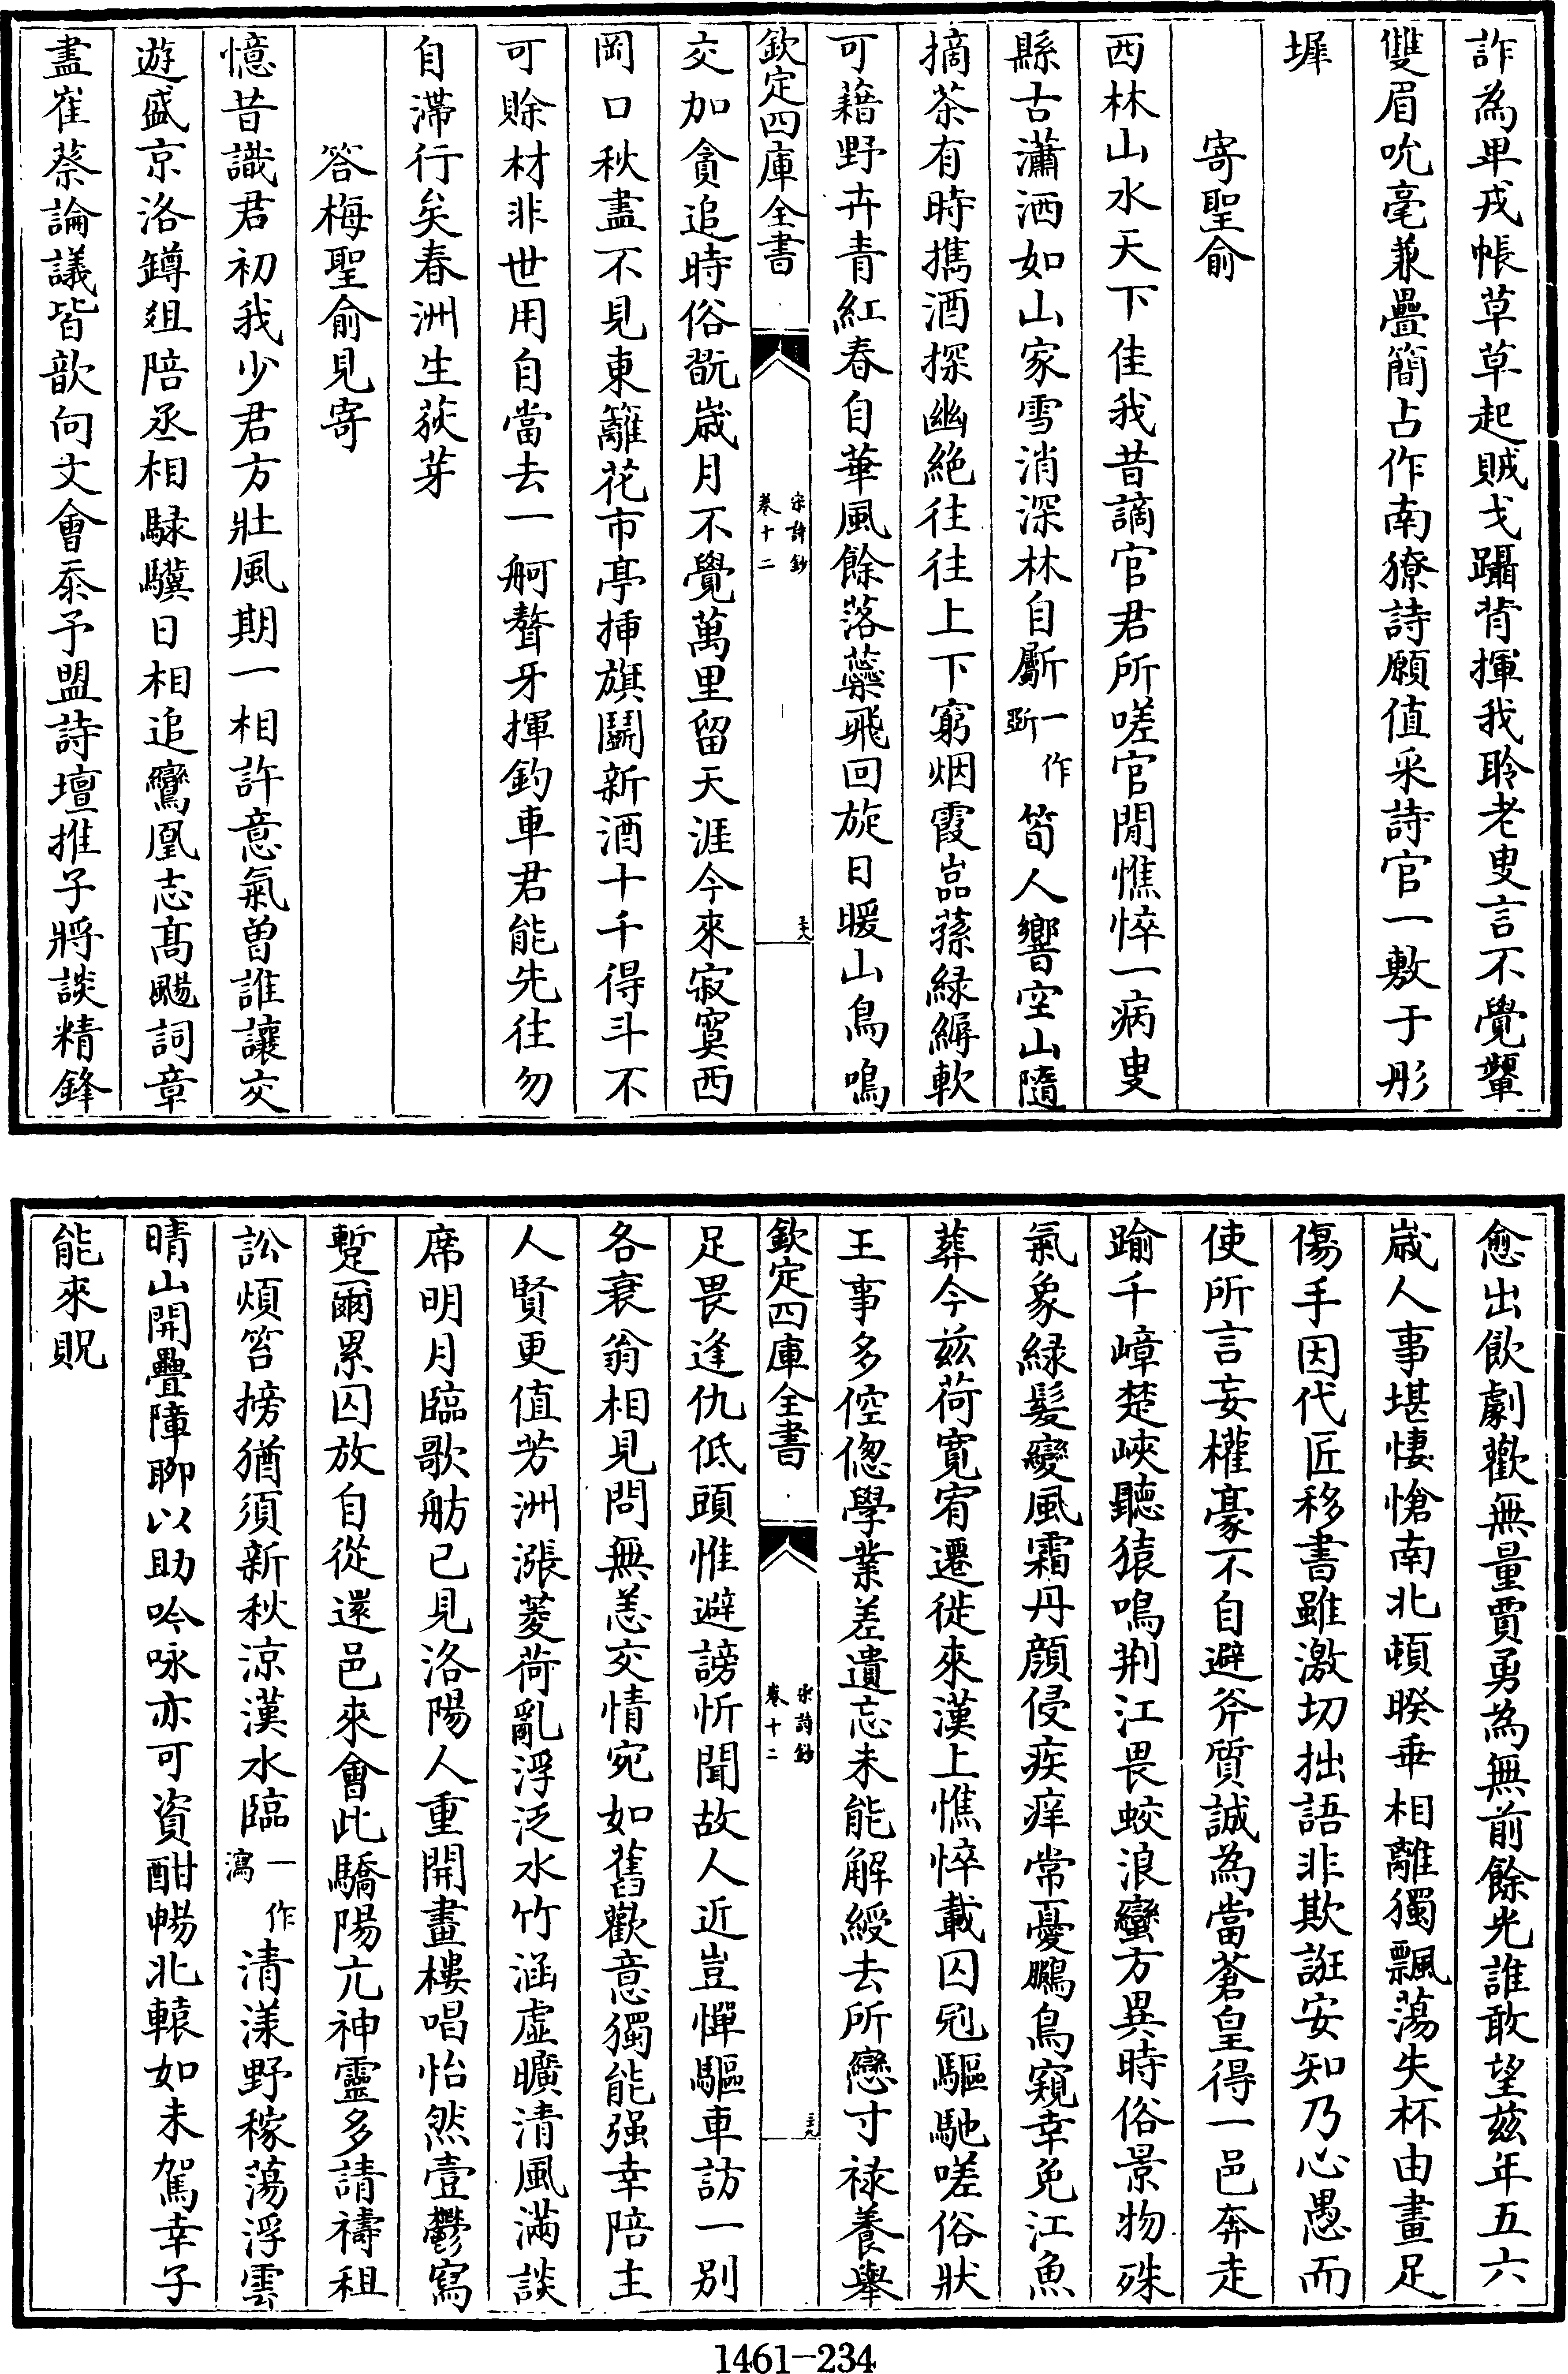 詐為卑戎帳草草起賊戈躡背揮我聆老叟言不覺顰
雙眉吮毫兼疊簡占作南獠詩願值采詩官一敷于彤
墀
寄聖俞
西林山水天下佳我昔謫官君所嗟官閒憔悴一病叟
縣古瀟洒如山家雪消深林自斸一作斲筍人響空山隨
摘茶有時擕酒探幽絶往往上下窮烟霞嵓蓀緑縟軟
可藉野卉青紅春自華風餘落蘂飛回旋日暖山鳥鳴
欽定四庫全書
宋詩鈔
卷十二
三十八
交加貪追時俗翫歲月不覺萬里留天涯今來寂寞西
岡口秋盡不見東籬花市亭挿旗鬭新酒十千得斗不
可賒材非世用自當去一舸聱牙揮釣車君能先往勿
自滯行矣春洲生荻芽
答梅聖俞見寄
憶昔識君初我少君方壯風期一相許意氣曽誰讓交
遊盛京洛罇俎陪丞相騄驥日相追鸞凰志髙颺詞章
盡崔蔡論議皆歆向文會忝予盟詩壇推子將談精鋒
愈出飲劇歡無量賈勇為無前餘光誰敢望茲年五六
歲人事堪悽愴南北頓暌垂相離獨飄蕩失杯由畫足
傷手因代匠移書雖激切拙語非欺誑安知乃心愚而
使所言妄權豪不自避斧質誠為當蒼皇得一邑奔走
踰千嶂楚峽聽猿鳴荆江畏蛟浪蠻方異時俗景物殊
氣象緑髮變風霜丹顔侵疾痒常憂鵩鳥窺幸免江魚
葬今茲荷寛宥遷徙來漢上憔悴載囚兇驅馳嗟俗狀
王事多倥偬學業差遺忘未能解綬去所戀寸禄養舉
欽定四庫全書
宋詩鈔
卷十二
三十九
足畏逢仇低頭惟避謗忻聞故人近豈憚驅車訪一别
各衰翁相見問無恙交情宛如舊歡意獨能强幸陪主
人賢更值芳洲漲菱荷亂浮泛水竹涵虛曠清風滿談
席明月臨歌舫已見洛陽人重開畫樓唱怡然壹鬱寫
蹔爾累囚放自從還邑來會此驕陽亢神靈多請禱租
訟煩笞搒猶須新秋涼漢水臨一作瀉清漾野稼蕩浮雲
晴山開疊障聊以助吟咏亦可資酣暢北轅如未駕幸子
能來貺
1461—234